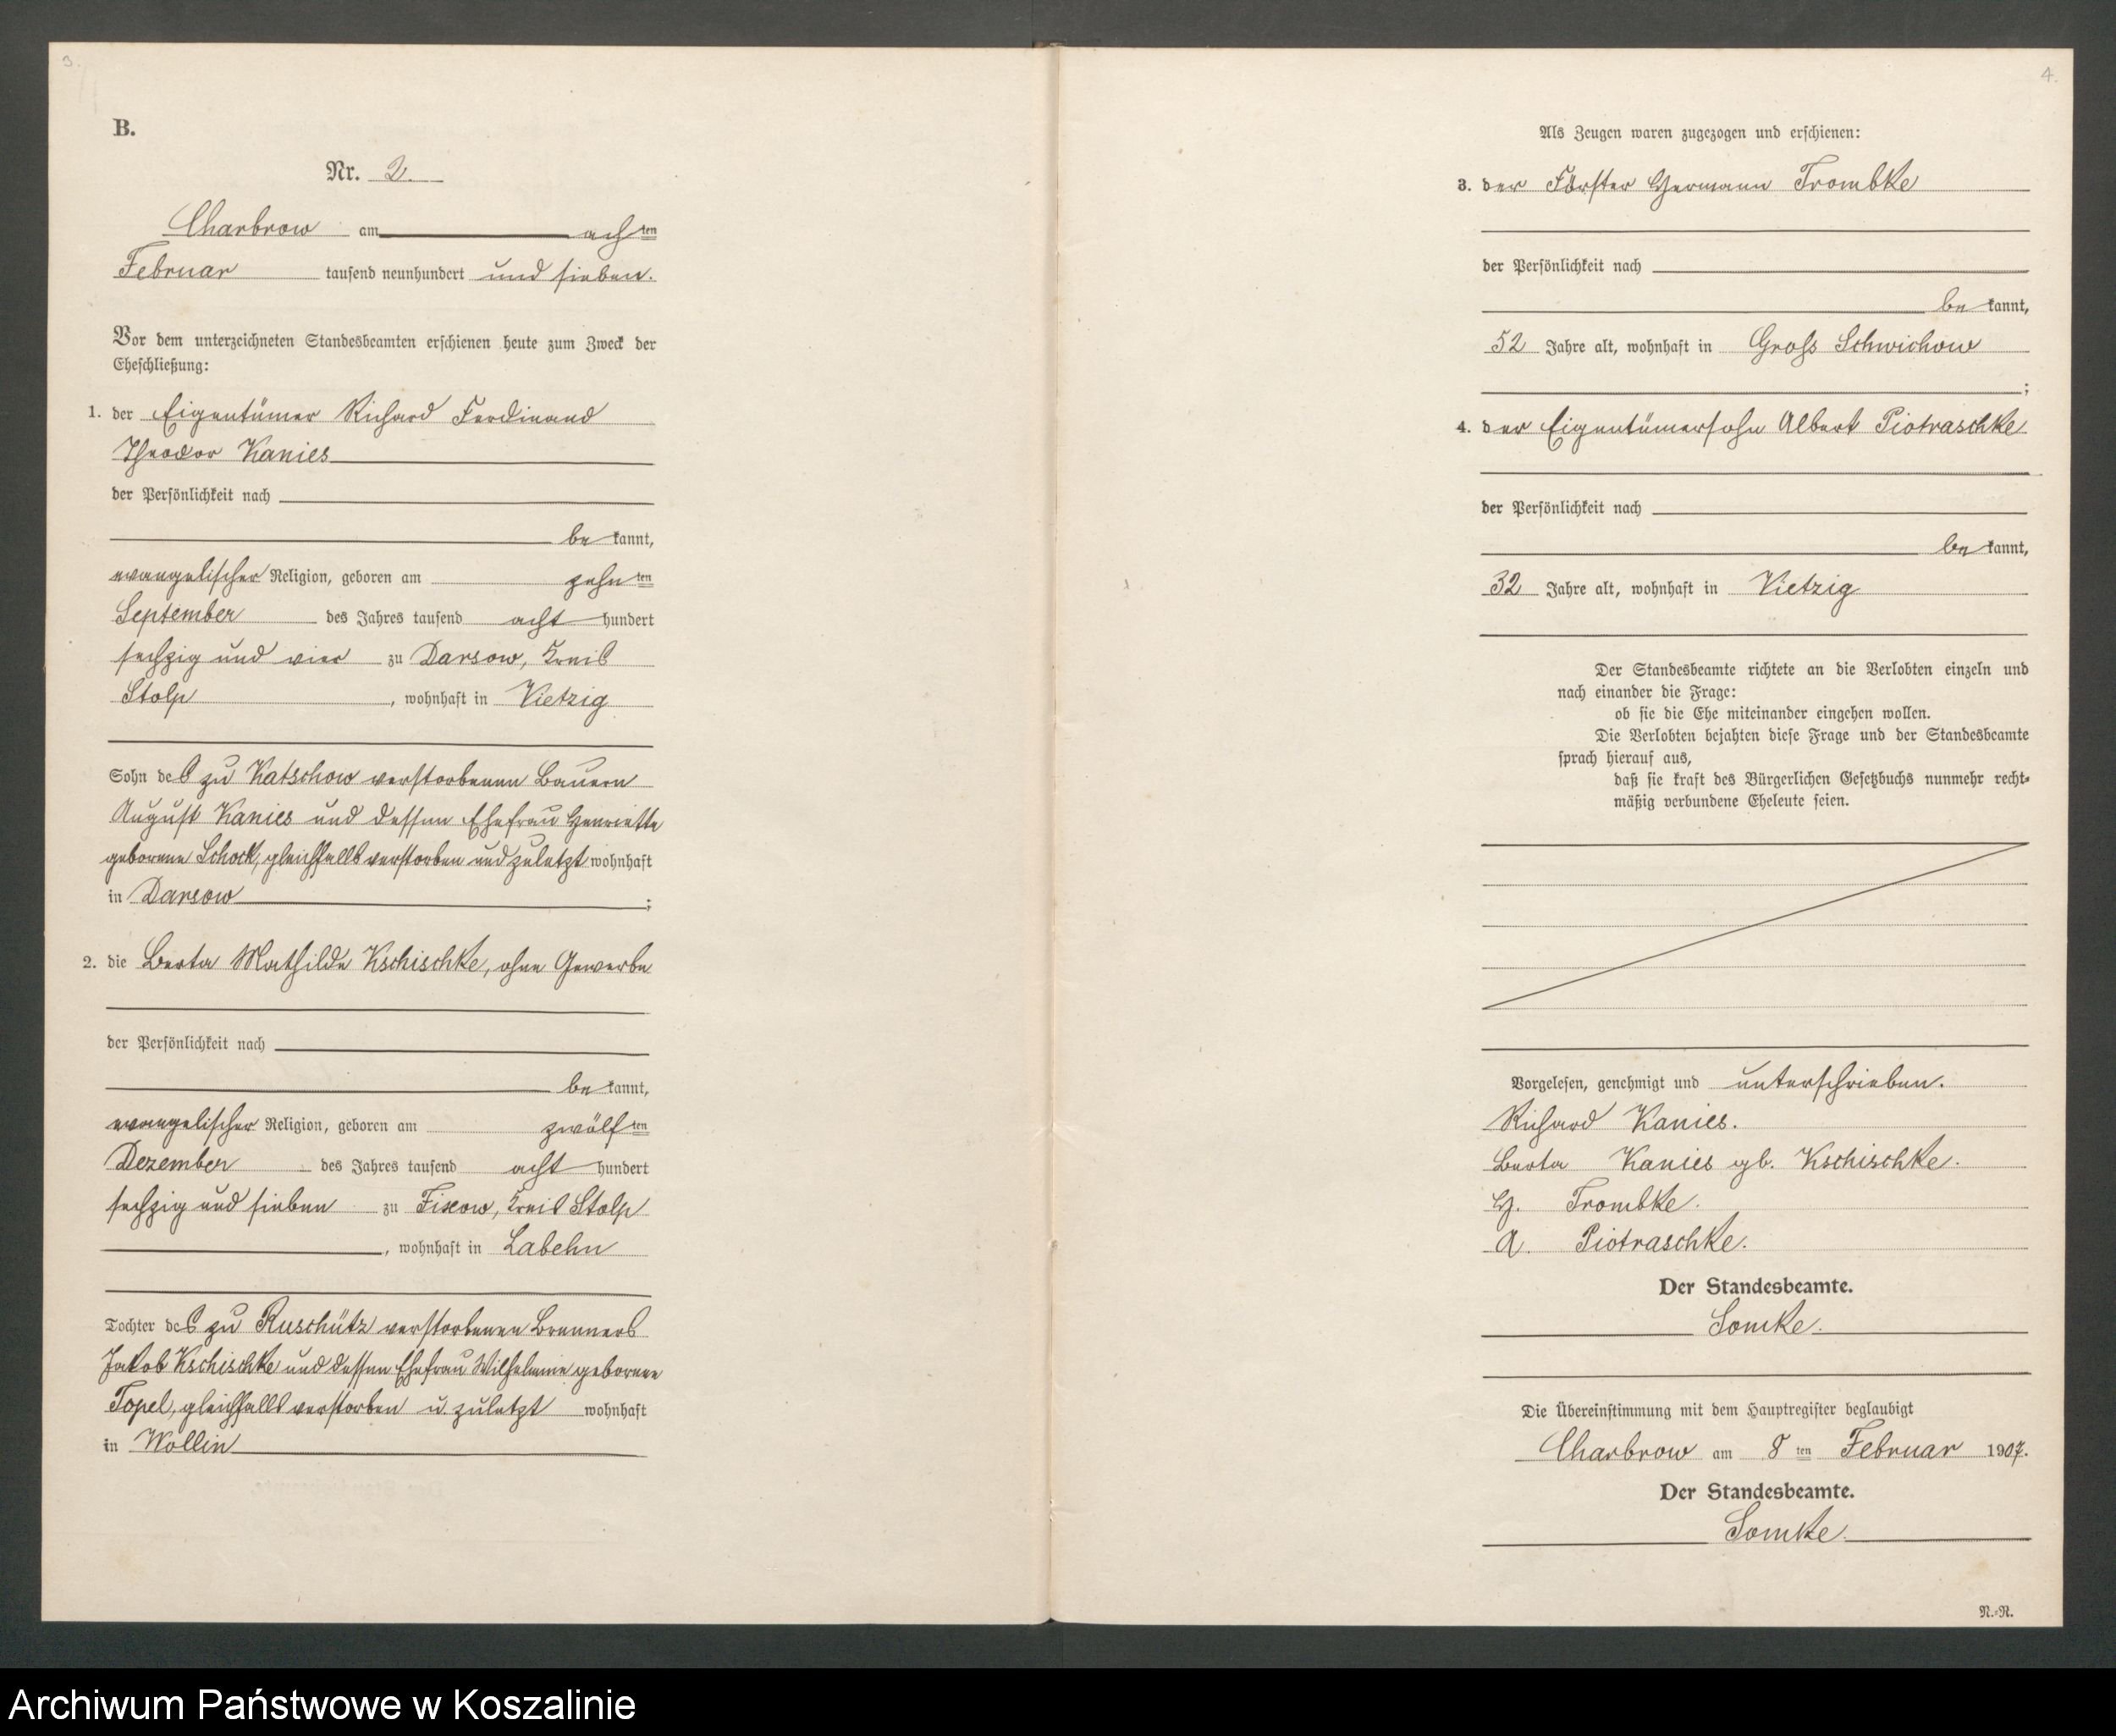 3.
B.
Nr. 2.
Charbrow am achten
Februar tausend neunhundert und sieben.
Vor dem unterzeichneten Standesbeamten erschienen heute zum Zweck der
Eheschließung:
1. der Eigentümer Richard Ferdinand
Theodor Kanies
der Persönlichkeit nach
be kannt,
evangelischer Religion, geboren am zehnten
September des Jahres tausend acht hundert
sechzig und vier zu Darsow, Kreis
Stolp, wohnhaft in Vietzig
Sohn des zu Katschow verstorbenen Bauern
August Kanies und dessen Ehefrau Henriette
geborene Schock, gleichfalls verstorben und zuletzt wohnhaft
in Darsow;
2. die Berta Mathilde Kschischke, ohne Gewerbe
der Persönlichkeit nach
be kannt,
evangelischer Religion, geboren am zwölften
Dezember des Jahres tausend acht hundert
sechzig und sieben zu Fixow, Kreis Stolp
, wohnhaft in Labehn
Tochter des zu Ruschütz verstorbenen Brenners
Jakob Kschischke und dessen Ehefrau Wilhelmine geborene
Topel, gleichfalls verstorben u. zuletzt wohnhaft
in Wollin
4.
Als Zeugen waren zugezogen und erschienen:
3. der Förster Hermann Trombke
der Persönlichkeit nach
be kannt,
52 Jahre alt, wohnhaft in Groß Schwichow
;
4. der Eigentümersohn Albert Piotraschke
der Persönlichkeit nach
be kannt,
32 Jahre alt, wohnhaft in Vietzig
Der Standesbeamte richtete an die Verlobten einzeln und
nach einander die Frage:
ob sie die Ehe miteinander eingehen wollen.
Die Verlobten bejahten diese Frage und der Standesbeamte
sprach hierauf aus,
daß sie kraft des Bürgerlichen Gesetzbuchs nunmehr recht-
mäßig verbundene Eheleute seien.
Vorgelesen, genehmigt und unterschrieben.
Richard Kanies.
Berta Kanies gb. Kschischke.
H. Trombke.
A. Piotraschke.
Der Standesbeamte.
Somke.
Die Übereinstimmung mit dem Hauptregister beglaubigt
Charbrow am 8ten Februar 1907.
Der Standesbeamte.
Somke
N.-N.
Archiwum Państwowe w Koszalinie